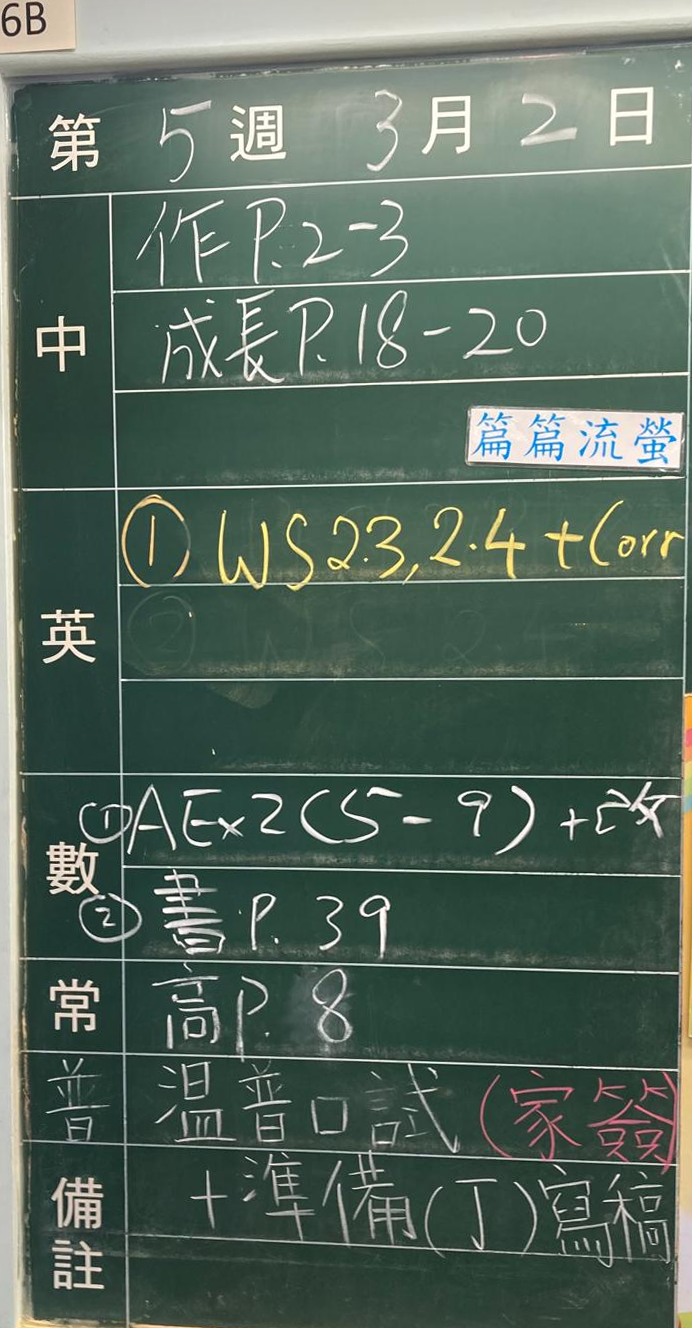 6B
第 5 週 3 月 2 日
中
作 P.2-3
成長 P.18-20
篇篇流螢
英
① WS 2.3, 2.4 + Corr
② WS 2.4
數
① A Ex 2 (5-9) + 改
② 書 P. 39
常
高 P. 8
普
溫普口試 (家簽)
備註
+ 準備 (丁) 寫稿